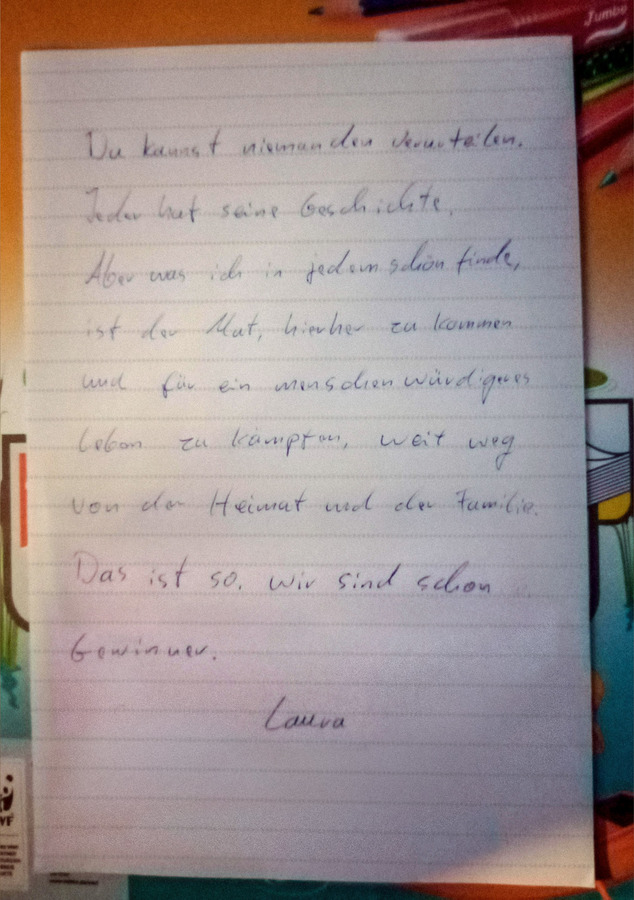 Du kannst niemanden verurteilen.
Jeder hat seine Geschichte.
Aber was ich in jedem schön finde,
ist der Mut, hierher zu kommen
und für ein menschenwürdigeres
Leben zu kämpfen, weit weg
von der Heimat und der Familie.
Das ist so. wir sind schon
Gewinner.
Laura
Jumbo